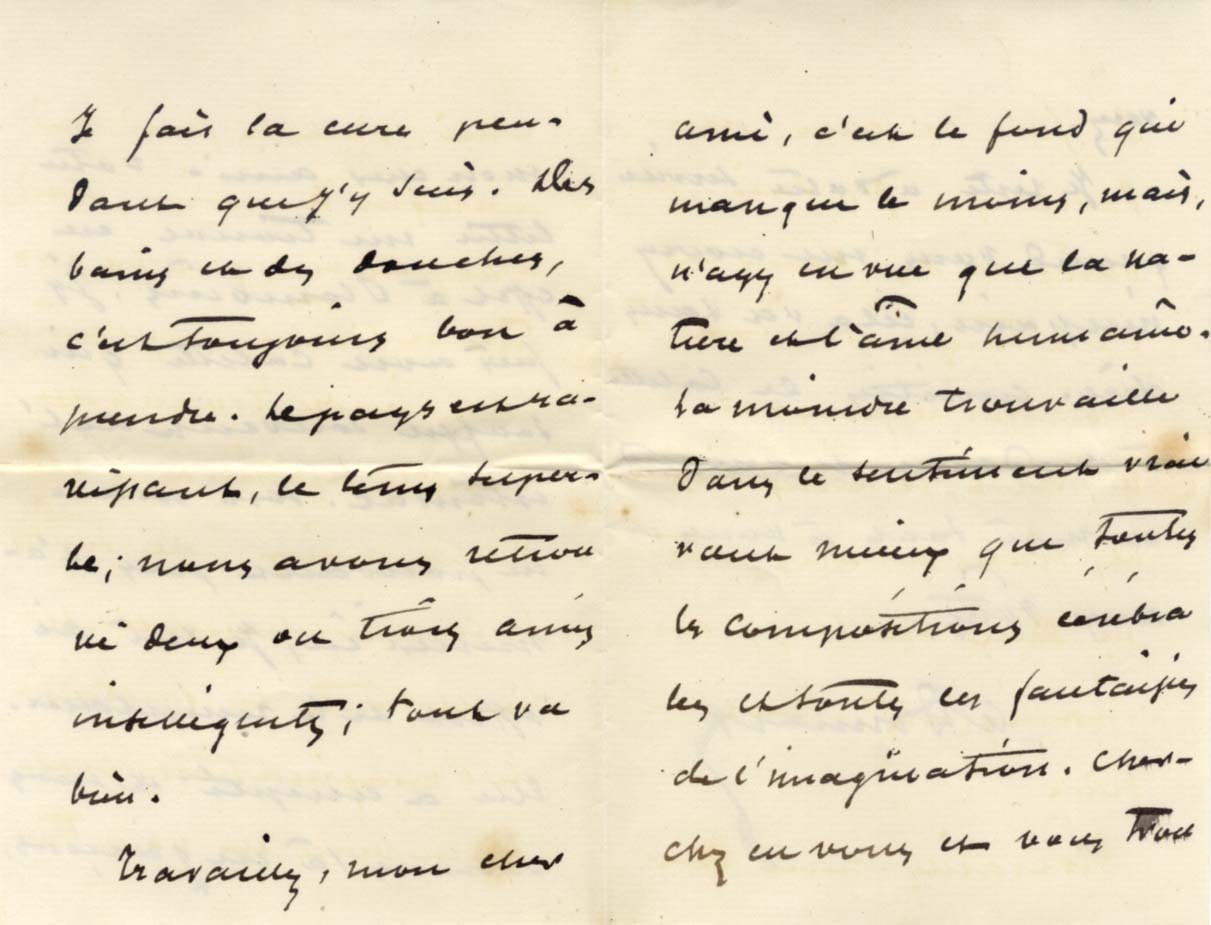 Je fais la cure pen-
dant que j'y suis. Des
bains et des douches,
c'est toujours bon à
prendre. Le pays est ra-
vissant, le tems super-
be; nous avons retrou
vé deux ou trois amis
intelligents; tout va
bien.
Travaillez, mon cher
ami, c'est le fond qui
manque le moins, mais,
n'ayez en vue que la na-
ture et l'âme humaine.
La moindre trouvaille
dans le sentiment vrai
vaut mieux que toutes
les compositions cérébra
les et toutes les fantaisies
de l'imagination. Cher-
chez en vous et vous trou